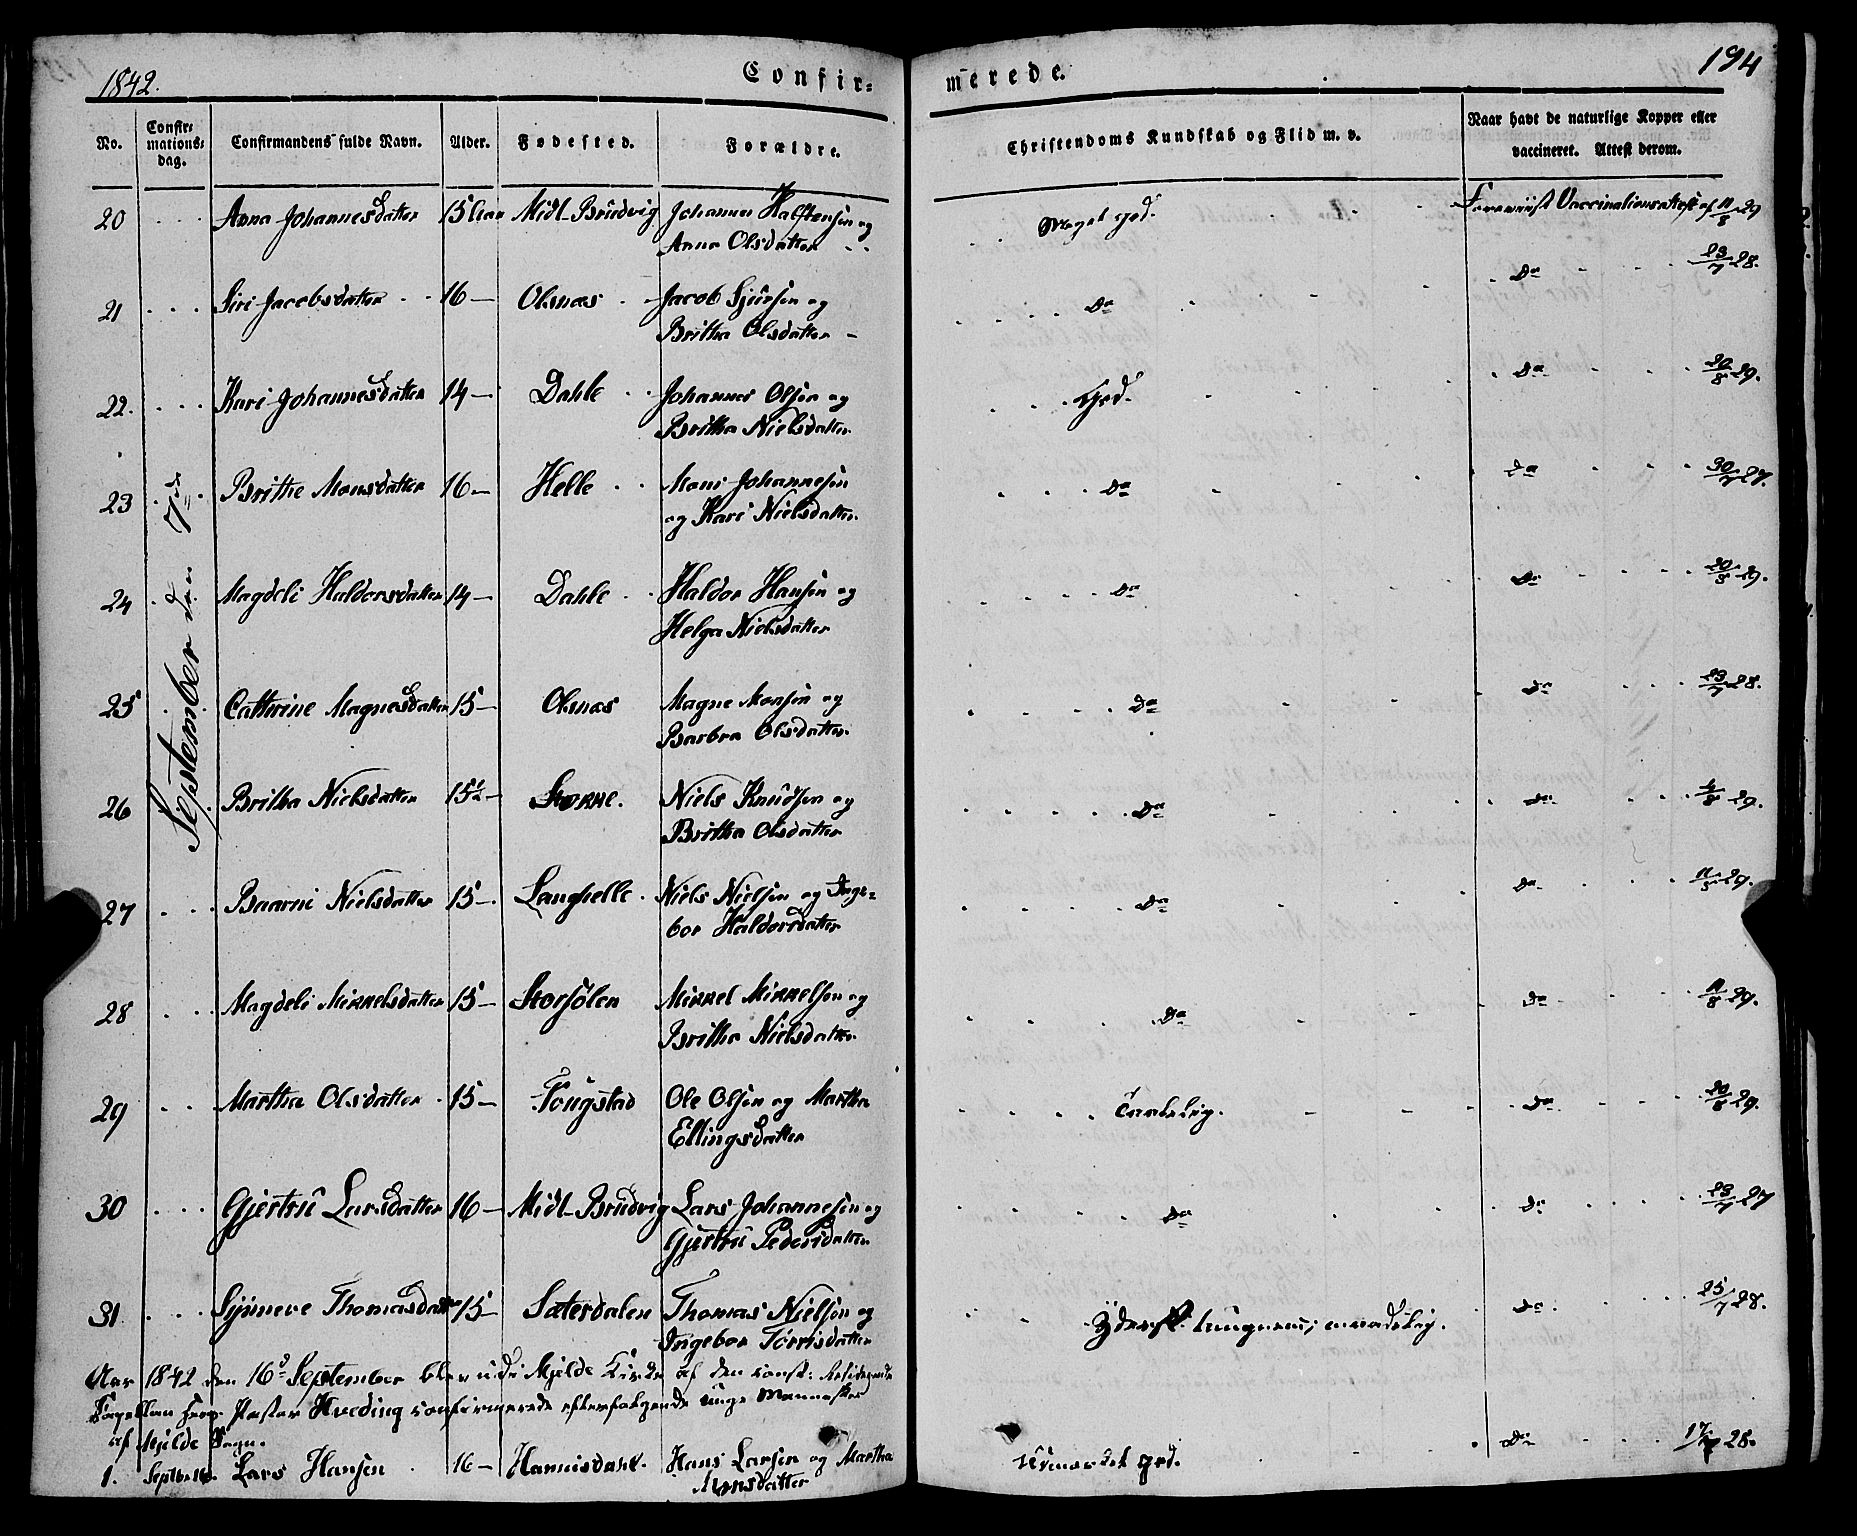 1842.
Confirmerede.
194
No. Confirmationsdag. Confirmandens fulde Navn. Alder. Fødested. Forældre. Christendoms Kundskab og Flid m. v. Naar havt de naturlige Kopper eller vaccineret. Attest derom.
September den 7de
20 Anna Johannesdatter 15 Aar Midt-Brudvig Johannes Halstensen og Meget god. Foreviist Vaccinationsattest af 11/8 29
Anna Olsdatter
21 Siri Jacobsdatter 16 — Olsnæs Jacob Sjursen og Do Do 23/7 28.
Britha Olsdatter —
22. Kari Johannesdatter 14 — Dahle Johannes Olsen og God. Do 20/8 29.
Britha Nielsdatter
23 Brithe Monsdatter 16 — Helle Mons Johannesen Do Do 30/7 27.
og Kari Nielsdatter
24 Magdeli Haldorsdatter 14 — Dahle Haldor Hansen og Do Do 20/8 29.
Helga Nielsdatter
25 Cathrine Magnesdatter 15 — Olsnæs Magne Monsen og Do Do 23/7 28.
Barbra Olsdatter
26 Britha Nielsdatter 15½ — Storre. Niels Knudsen og Do Do 4/8 29.
Britha Olsdatter
27 Baarni Nielsdatter 15 — Langhelle Niels Nielsen og Inge- Do Do 29.
bor Haldorsdatter
28 Magdeli Mikkelsdatter 15 — Storsølen Mikkel Mikkelsen og Do Do 11/8 29.
Britha Nielsdatter
29 Martha Olsdatter 15 — Fougstad Ole Olsen og Martha Taalelig. Do 20/8 29.
Ellingsdatter
30 Gjertru Larsdatter 16 — Midt-Brudvig Lars Johannesen og Do Do 23/7 27
Gjertru Pedersdatter
31 Synneve Thomasdatter 15 — Sæterdalen Thomas Nielsen og Yderst tungnem; maadelig. Do 25/7 28.
Ingebor Tørrisdatter
Aar 1842 den 16d September blev udi Mjelde Kirke af den const: Residerende
Capellan Pastor Hveding confirmerede efterfølgende unge Mennesker
af Mjelde Sogn.
1. Septbr 16 Lars Hansen 16 — Hannisdahl. Hans Larsen og Martha Udmærket god. Do 17/7 28.
Monsdatter